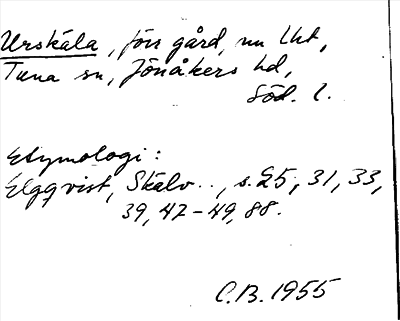 Urskåla, förr gård, nu lht,
Tuna sn, Jönåkers hd,
Söd. l.
Etymologi:
Elgqvist, Skälv.., s. 25, 31, 33,
39, 47-49, 88.
C.B. 1955